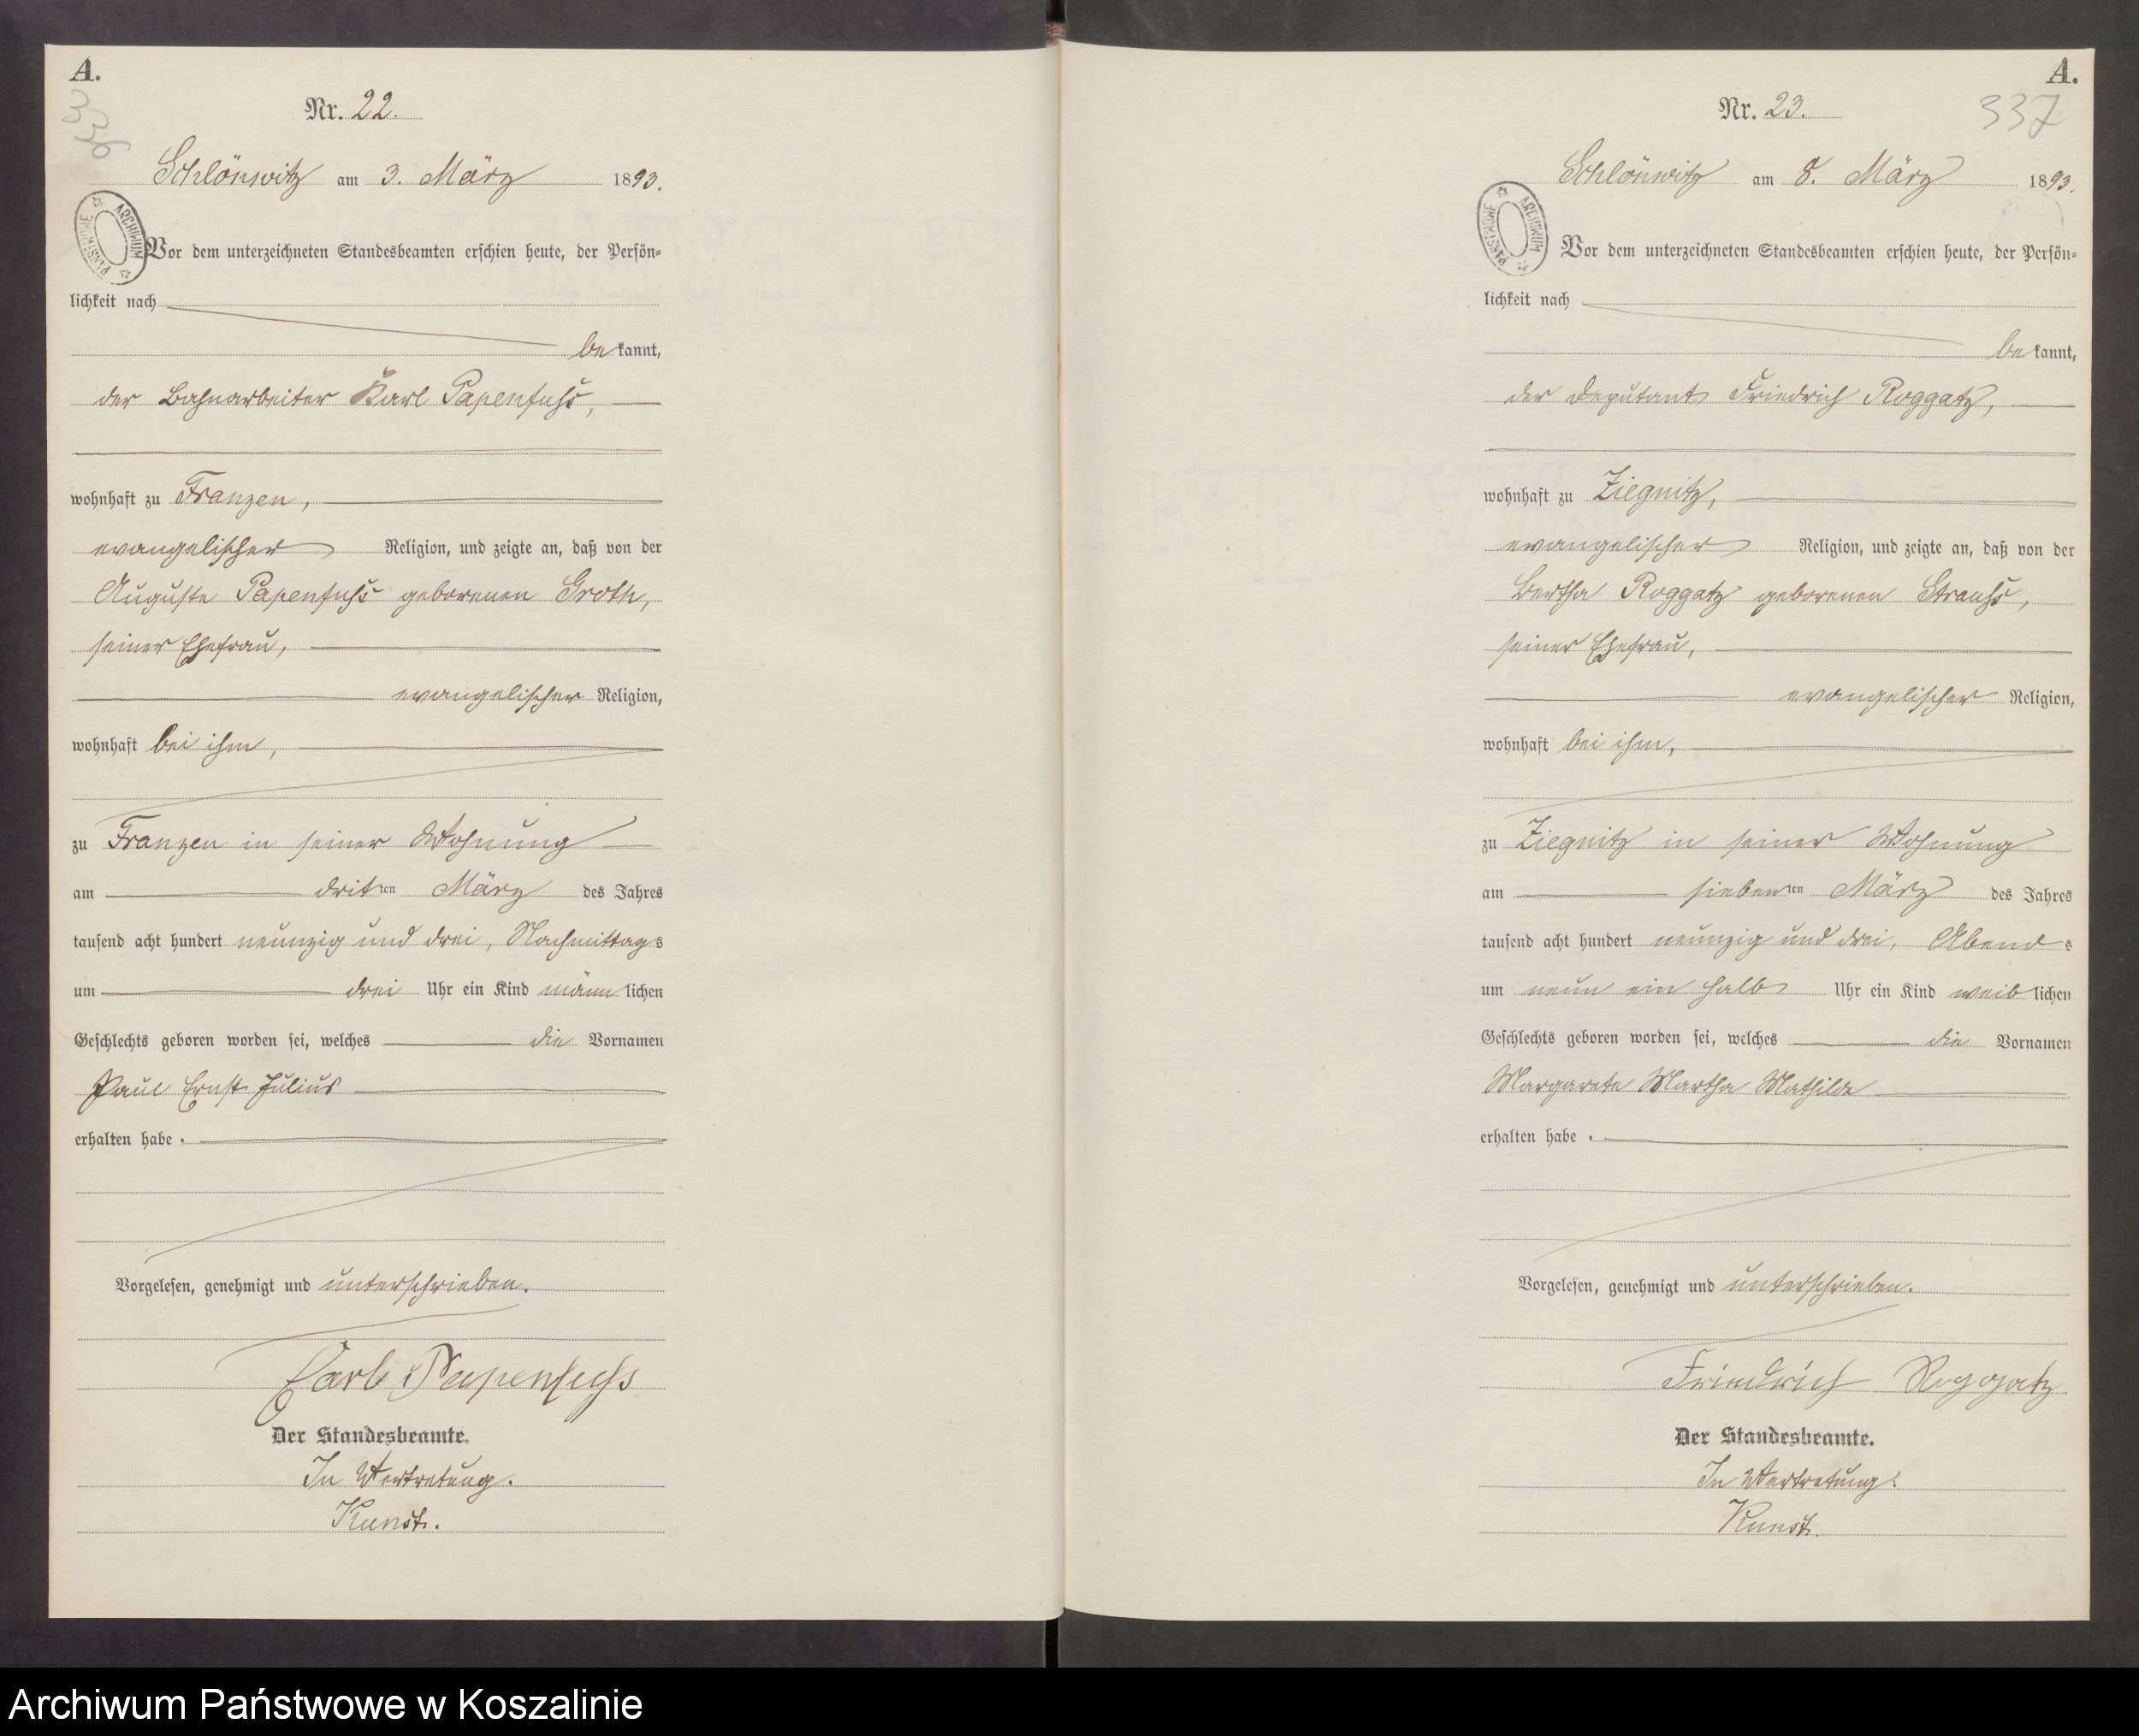 A.
336
Nr. 22.
Schlönwitz am 3. März 1893.
ARCHIWUM PAŃSTWOWE
Vor dem unterzeichneten Standesbeamten erschien heute, der Persön-
lichkeit nach
bekannt,
der Bahnarbeiter Karl Papenfuß,
wohnhaft zu Franzen,
evangelischer Religion, und zeigte an, daß von der
Auguste Papenfuß geborenen Groth,
seiner Ehefrau,
evangelischer Religion,
wohnhaft bei ihm,
zu Franzen in seiner Wohnung
am dritten März des Jahres
tausend acht hundert neunzig und drei, Nachmittags
um drei Uhr ein Kind männlichen
Geschlechts geboren worden sei, welches die Vornamen
Paul Ernst Julius
erhalten habe.
Vorgelesen, genehmigt und unterschrieben.
Carl Papenfuhs
Der Standesbeamte.
In Vertretung.
Kunst.
A.
337
Nr. 23.
Schlönwitz am 8. März 1893.
ARCHIWUM PAŃSTWOWE
Vor dem unterzeichneten Standesbeamten erschien heute, der Persön-
lichkeit nach
bekannt,
der Deputant Friedrich Roggatz,
wohnhaft zu Ziegnitz,
evangelischer Religion, und zeigte an, daß von der
Bertha Roggatz geborenen Strauß,
seiner Ehefrau,
evangelischer Religion,
wohnhaft bei ihm,
zu Ziegnitz in seiner Wohnung
am siebenten März des Jahres
tausend acht hundert neunzig und drei, Abends
um neun ein halb Uhr ein Kind weiblichen
Geschlechts geboren worden sei, welches die Vornamen
Margarete Martha Mathilde
erhalten habe.
Vorgelesen, genehmigt und unterschrieben.
Friedrich Roggatz
Der Standesbeamte.
In Vertretung.
Kunst.
Archiwum Państwowe w Koszalinie